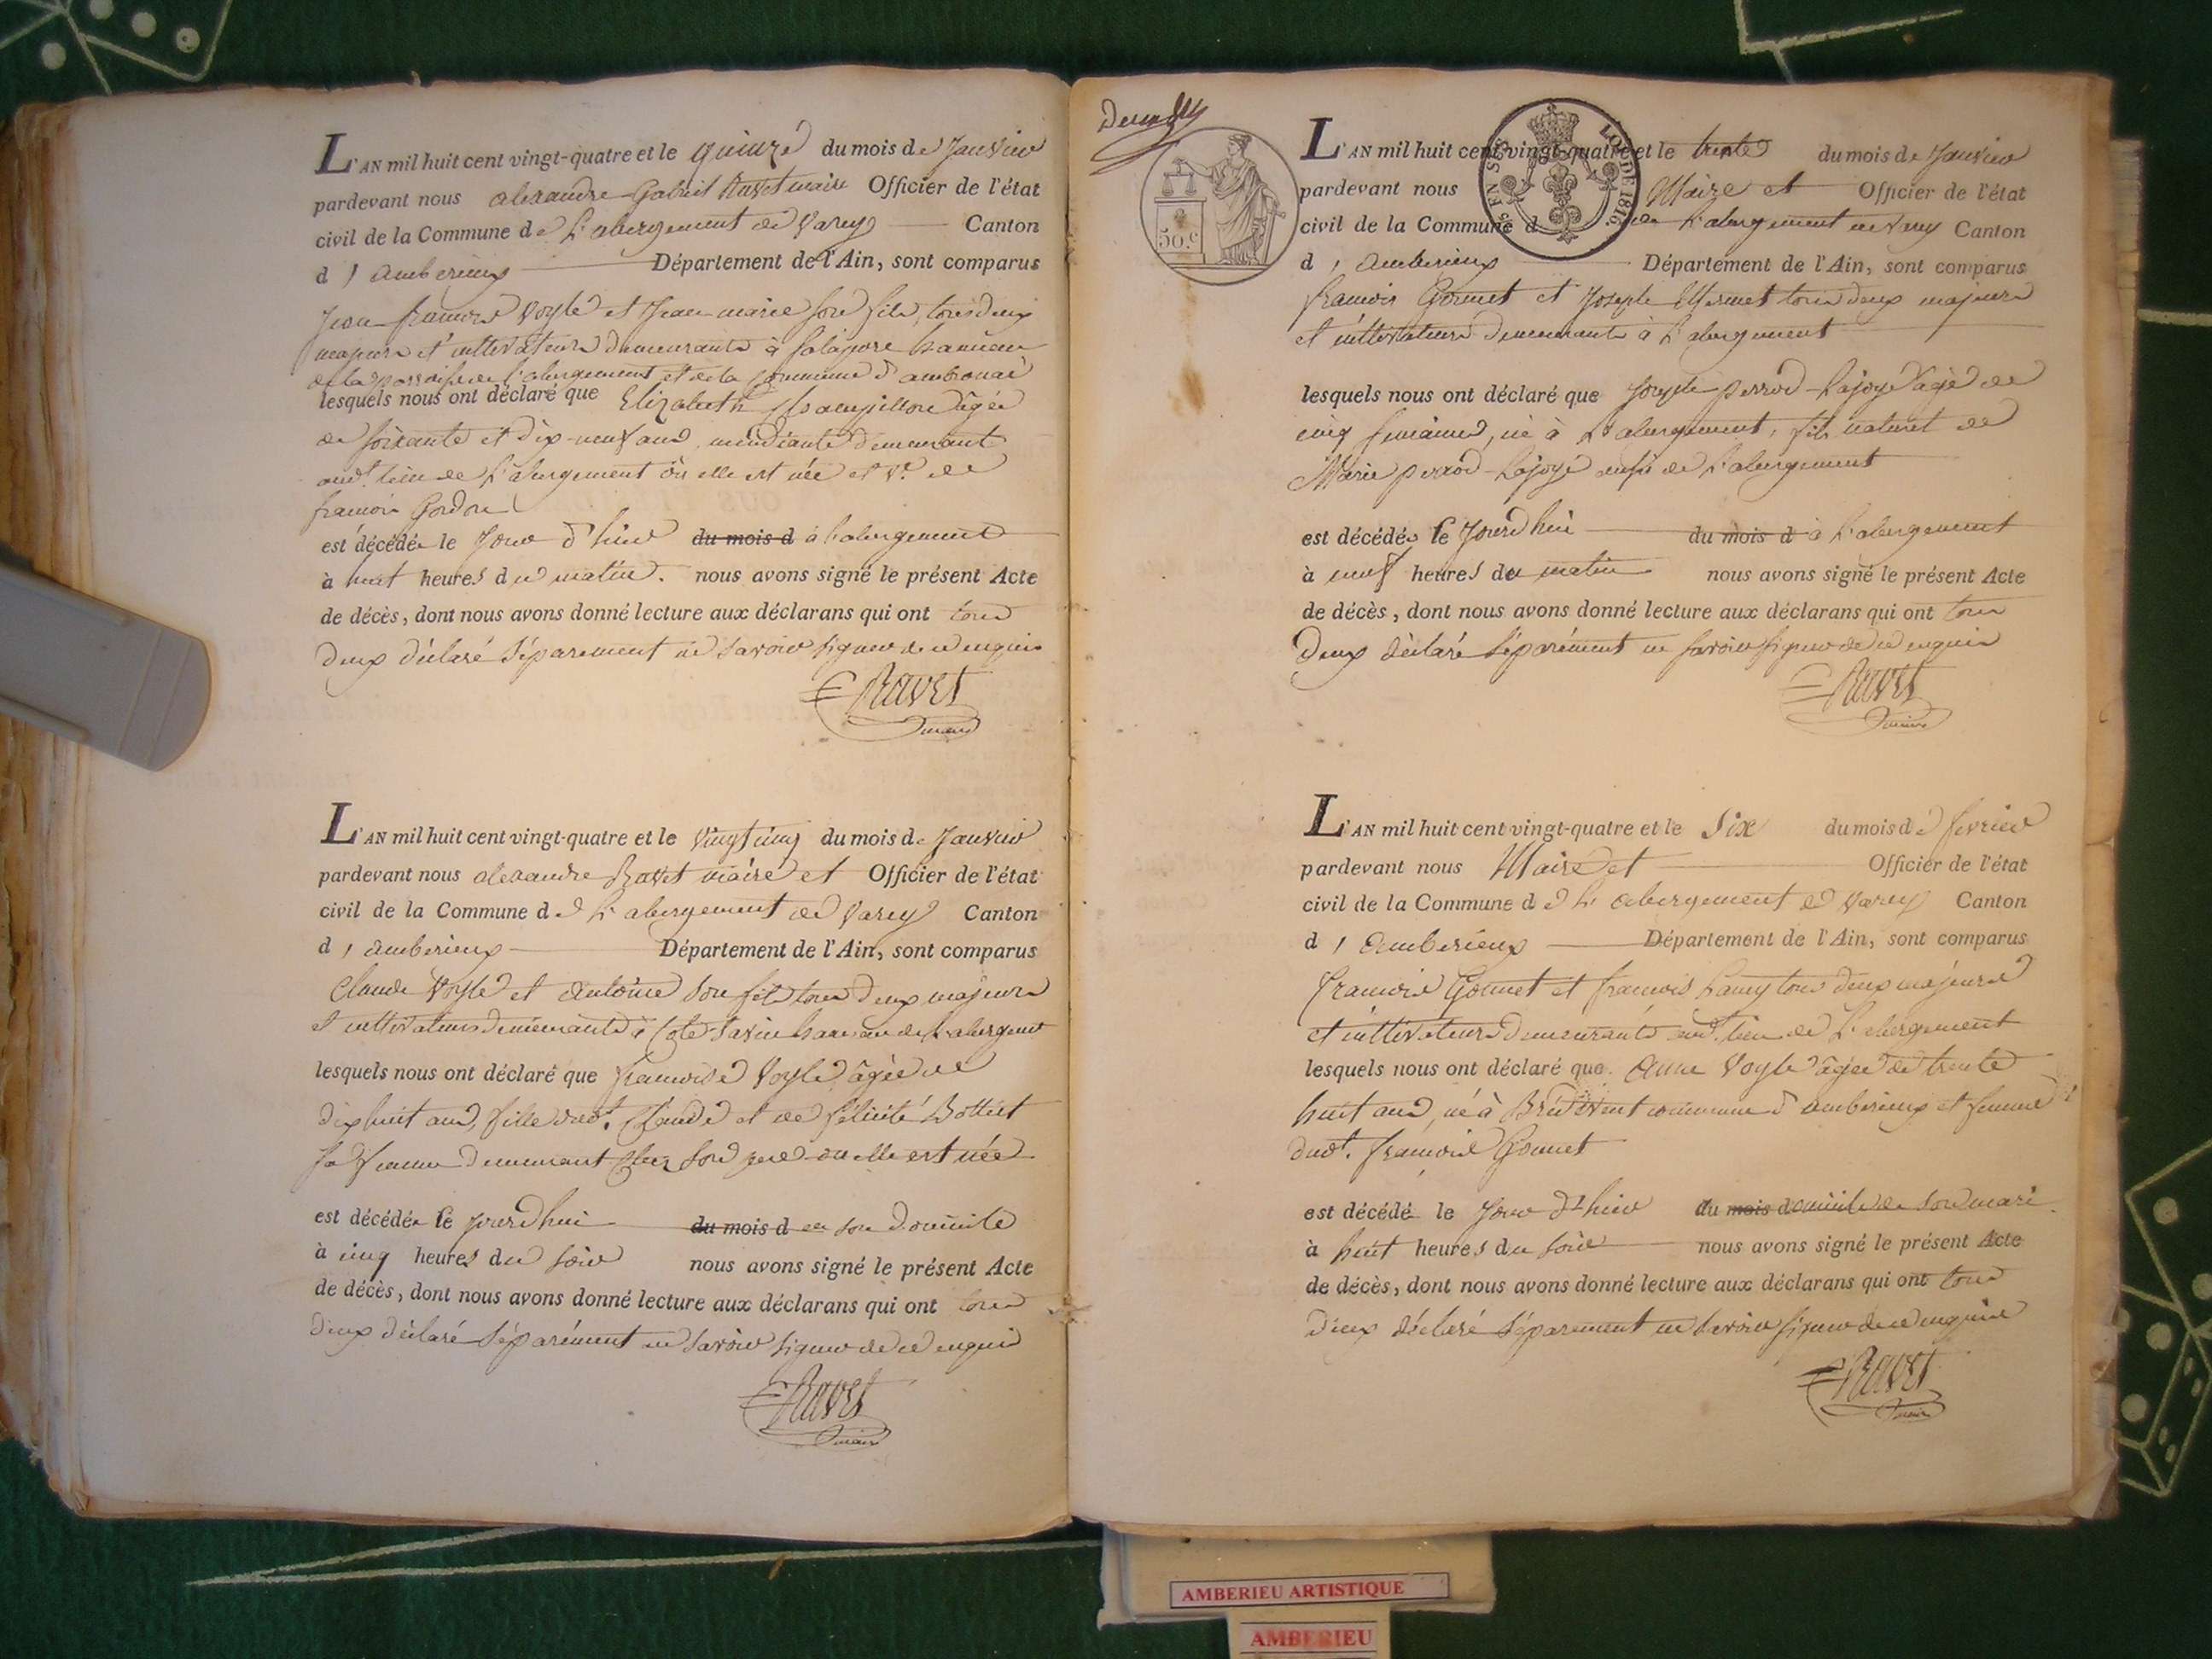 L'AN mil huit cent vingt-quatre et le quinze du mois de Janvier
pardevant nous alexandre Gabriel Ravet maire Officier de l'état
civil de la Commune de L'abergement de Varey Canton
d'amberieux Département de l'Ain, sont comparus
Jean françois Voyle et Jean marie son fils, tous deux
majeurs et cultivateurs demeurants à hameau
de la parroisse de l'abergement et de la Commune d'ambronai
lesquels nous ont déclaré que Elizabeth âgée
de soixante et dix-neuf ans mendiante demeurant
aud.t lieu de L'abergement où elle est née et v.e de
françois Gordon
est décédée le Jour d'hier du mois d à L'abergement
à huit heures du matin. nous avons signé le présent Acte
de décès, dont nous avons donné lecture aux déclarans qui ont tous
deux déclaré séparement ne savoir signer de ce enquis
Ravet
maire
L'AN mil huit cent vingt-quatre et le vingt cinq du mois de Janvier
pardevant nous alexandre Ravet maire et Officier de l'état
civil de la Commune de L'abergement de Varey Canton
d'amberieux Département de l'Ain, sont comparus
Claude Voyle et Antoine son fils tous deux majeurs
et cultivateurs demeurants à Côte Savin hameau de L'abergement
lesquels nous ont déclaré que françoise Voyle âgée de
dix huit ans, fille dud.t Claude et de félicité Bottet
sa femme demeurant chez son père où elle est née
est décédée le jourd'hui du mois d en son domicile
à cinq heures du soir nous avons signé le présent Acte
de décès, dont nous avons donné lecture aux déclarans qui ont tous
deux déclaré séparément ne savoir signer de ce enquis
Ravet
maire
50.c
EN SUS
LOI DE 1816
L'AN mil huit cent vingt-quatre et le trente du mois de Janvier
pardevant nous Maire et Officier de l'état
civil de la Commune d de L'abergement de Varey Canton
d'amberieux Département de l'Ain, sont comparus
françois Gonnet et Joseph Mermet tous deux majeurs
et cultivateurs demeurants à L'abergement
lesquels nous ont déclaré que Joseph perrod-Lajoye âgé de
cinq semaines, né à L'abergement, fils naturel de
Marie perrod-Lajoye aussi de L'abergement
est décédé le Jourd'hui du mois d à L'abergement
à neuf heures du matin nous avons signé le présent Acte
de décès, dont nous avons donné lecture aux déclarans qui ont tous
deux déclaré séparément ne savoir signer de ce enquis
Ravet
maire
L'AN mil huit cent vingt-quatre et le Six du mois de fevrier
pardevant nous Maire et Officier de l'état
civil de la Commune de L'abergement de Varey Canton
d'Amberieux Département de l'Ain, sont comparus
françois Gonnet et françois Lamy tous deux majeurs
et cultivateurs demeurants aud.t lieu de L'abergement
lesquels nous ont déclaré que Anne Voyle âgée de trente
huit ans, né à Brédevent commune d'amberieux et femme
dud.t françois Gonnet
est décédé le Jour d'hier du mois domicile de son mari
à huit heures du soir nous avons signé le présent Acte
de décès, dont nous avons donné lecture aux déclarans qui ont tous
deux déclaré séparement ne savoir signer de ce enquis
Ravet
maire
AMBERIEU ARTISTIQUE
AMBERIEU